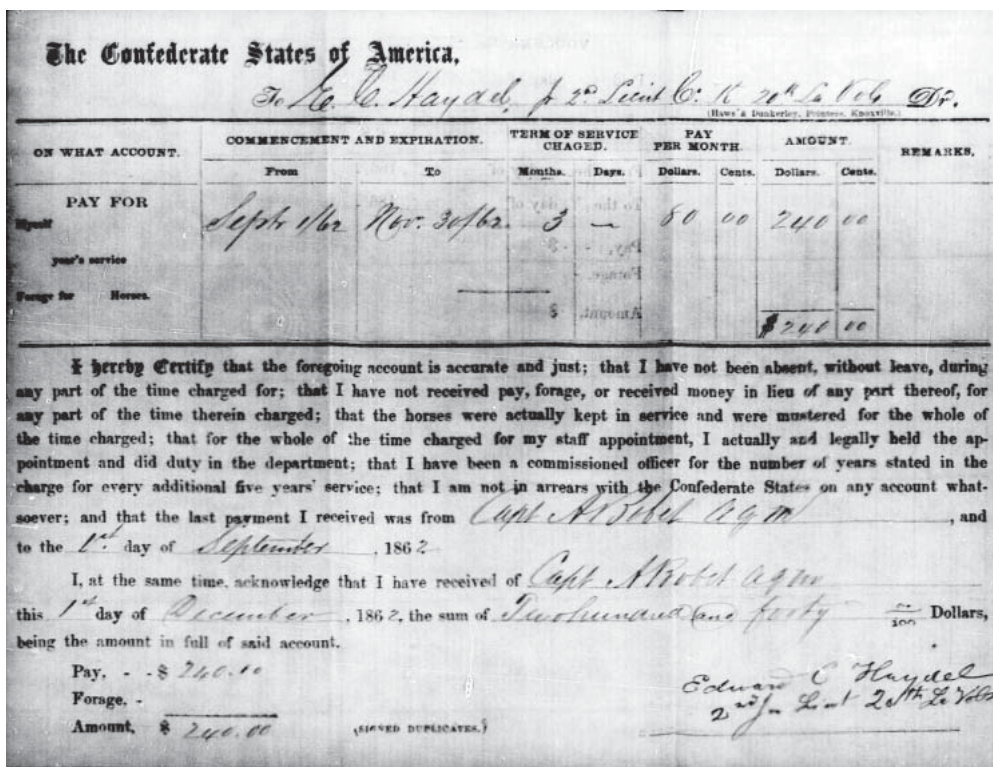 The Confederate States of America,
To E. C. Haydel, jr 2d Lieut Co. K 20th La Vols Dr.
(Haws & Dunkerley, Printers, Knoxville.)
ON WHAT ACCOUNT. COMMENCEMENT AND EXPIRATION. TERM OF SERVICE CHAGED. PAY PER MONTH. AMOUNT. REMARKS.
From To Months. Days. Dollars. Cents. Dollars. Cents.
PAY FOR
Myself Septr 1/62 Nov. 30/62. 3 — 80 00 240 00
year's service
Forage for Horses.
$240 00
I hereby Certify that the foregoing account is accurate and just; that I have not been absent, without leave, during
any part of the time charged for; that I have not received pay, forage, or received money in lieu of any part thereof, for
any part of the time therein charged; that the horses were actually kept in service and were mustered for the whole of
the time charged; that for the whole of the time charged for my staff appointment, I actually and legally held the ap-
pointment and did duty in the department; that I have been a commissioned officer for the number of years stated in the
charge for every additional five years' service; that I am not in arrears with the Confederate States on any account what-
soever; and that the last payment I received was from Capt A Bobet aqm, and
to the 1st day of September, 1862
I, at the same time, acknowledge that I have received of Capt A Bobet aqm
this 1st day of December, 1862, the sum of Two hundred and forty 00/100 Dollars,
being the amount in full of said account.
Pay, - - $ 240.00
Forage, -
Amount, $ 240.00 (SIGNED DUPLICATES.)
Edward C Haydel
2nd Jr Lieut 20th La Vols